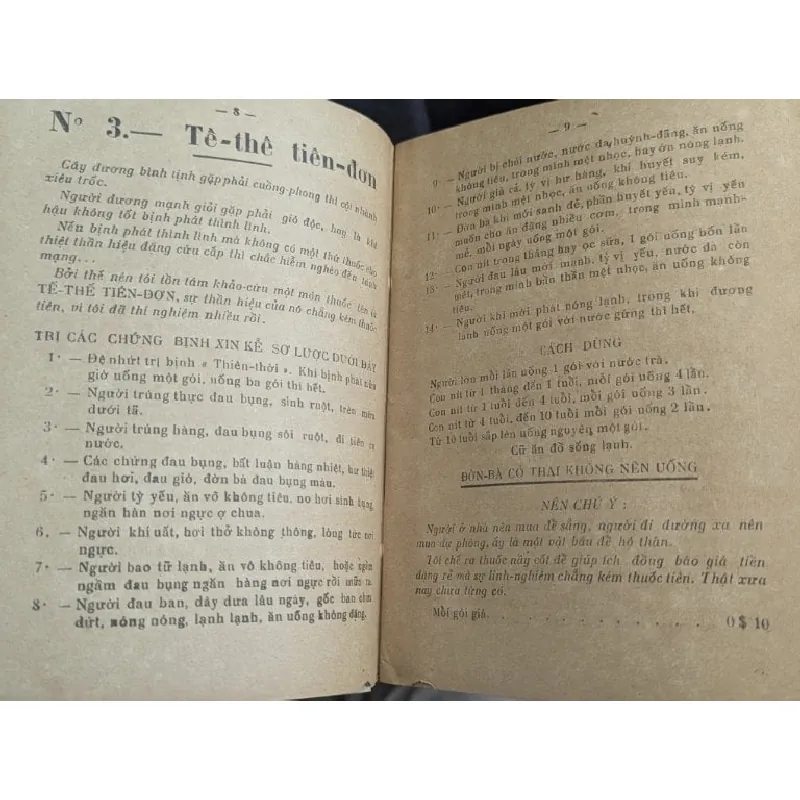 — 8 —
Nº 3.— Tê-thê tiên-đơn
Cây đương bịnh tịnh gặp phải cuồng-phong thì cội nhành
xiêu trốc.
Người đương mạnh giỏi gặp phải gió độc, hay là khí
hậu không tốt bịnh phát thình lình.
Nếu bịnh phát thình lình mà không có một thứ thuốc
thiệt thần hiệu đặng cứu cấp thì chắc hiểm nghèo đến tánh
mạng...
Bởi thế nên tôi tồn tâm khảo-cứu một món thuốc tên là
TẾ-THẾ TIÊN-ĐƠN, sự thần hiệu của nó chẳng kém thuốc
tiên, vì tôi đã thí nghiệm nhiều rồi.
TRỊ CÁC CHỨNG BỊNH XIN KỂ SƠ LƯỢC DƯỚI ĐÂY
1· — Đệ nhứt trị bịnh « Thiên-thới ». Khi bịnh phát nửa
giờ uống một gói, uống ba gói thì hết.
2· — Người trúng thực đau bụng, sình ruột, trên mửa
dưới tả.
3· — Người trúng hàng, đau bụng sôi ruột, đi tiên ra
nước.
4· — Các chứng đau bụng, bất luận hàng nhiệt, hư thiệt
đau hơi, đau gió, đờn bà đau bụng máu.
5· — Người tỳ yếu, ăn vô không tiêu, no hơi sình bụng
ngăn hàn nơi ngực ợ chua.
6. — Người khí uất, hơi thở không thông, lóng tức nơi
ngực.
7· — Người bao tử lạnh, ăn vô không tiêu, hoặc ngầm
ngầm đau bụng ngăn hàng nơi ngực rồi mửa ra.
8· — Người đau ban, dây dưa lâu ngày, gốc ban chưa
dứt, nóng nóng, lạnh lạnh, ăn uống không đặng.
— 9 —
9· — Người bị chói nước, nước da huỳnh-đãng, ăn uống
không tiêu, trong mình mệt nhọc, hay ớn nóng lạnh.
10· — Người già cả, tỳ vị hư hàng, khí huyết suy kém,
trong mình mệt nhọc, ăn uống không tiêu.
11· — Đờn bà khi mới sanh dẻ, phần huyết yếu, tỳ vị yếu
muốn cho ăn đặng nhiều cơm, trong mình mạnh-
mẻ, mỗi ngày uống một gói.
12· — Con nít trong tháng hay ọc sữa, 1 gói uống bốn lần
13· — Người đau lâu mới mạnh, tỳ vị yếu, nước da còn
mét, trong mình bần thần mệt nhọc, ăn uống không
tiêu.
14· — Người khi mới phát nóng lạnh, trong khi đương
lạnh uống một gói với nước gừng thì hết.
CÁCH DÙNG
Người lớn mỗi lần uống 1 gói với nước trà.
Con nít từ 1 tháng đến 1 tuổi, mỗi gói uống 4 lần.
Con nít từ 1 tuổi đến 4 tuổi, mỗi gói uống 3 lần.
Con nít từ 4 tuổi, đến 10 tuổi mỗi gói uống 2 lần.
Từ 10 tuổi sắp lên uống nguyên một gói.
Cữ ăn đồ sống lạnh.
ĐỜN-BÀ CÓ THAI KHÔNG NÊN UỐNG
NÊN CHÚ Ý :
Người ở nhà nên mua để sẳng, người đi đường xa nên
mua dự phòng, ấy là một vật báu để hộ thân.
Tôi chế ra thuốc nầy cốt để giúp ích đồng bào giá tiền
đặng rẻ mà sự linh-nghiệm chẳng kém thuốc tiên. Thật xưa
nay chưa từng có.
Mỗi gói giá. . . . . . . . . . . . 0$10